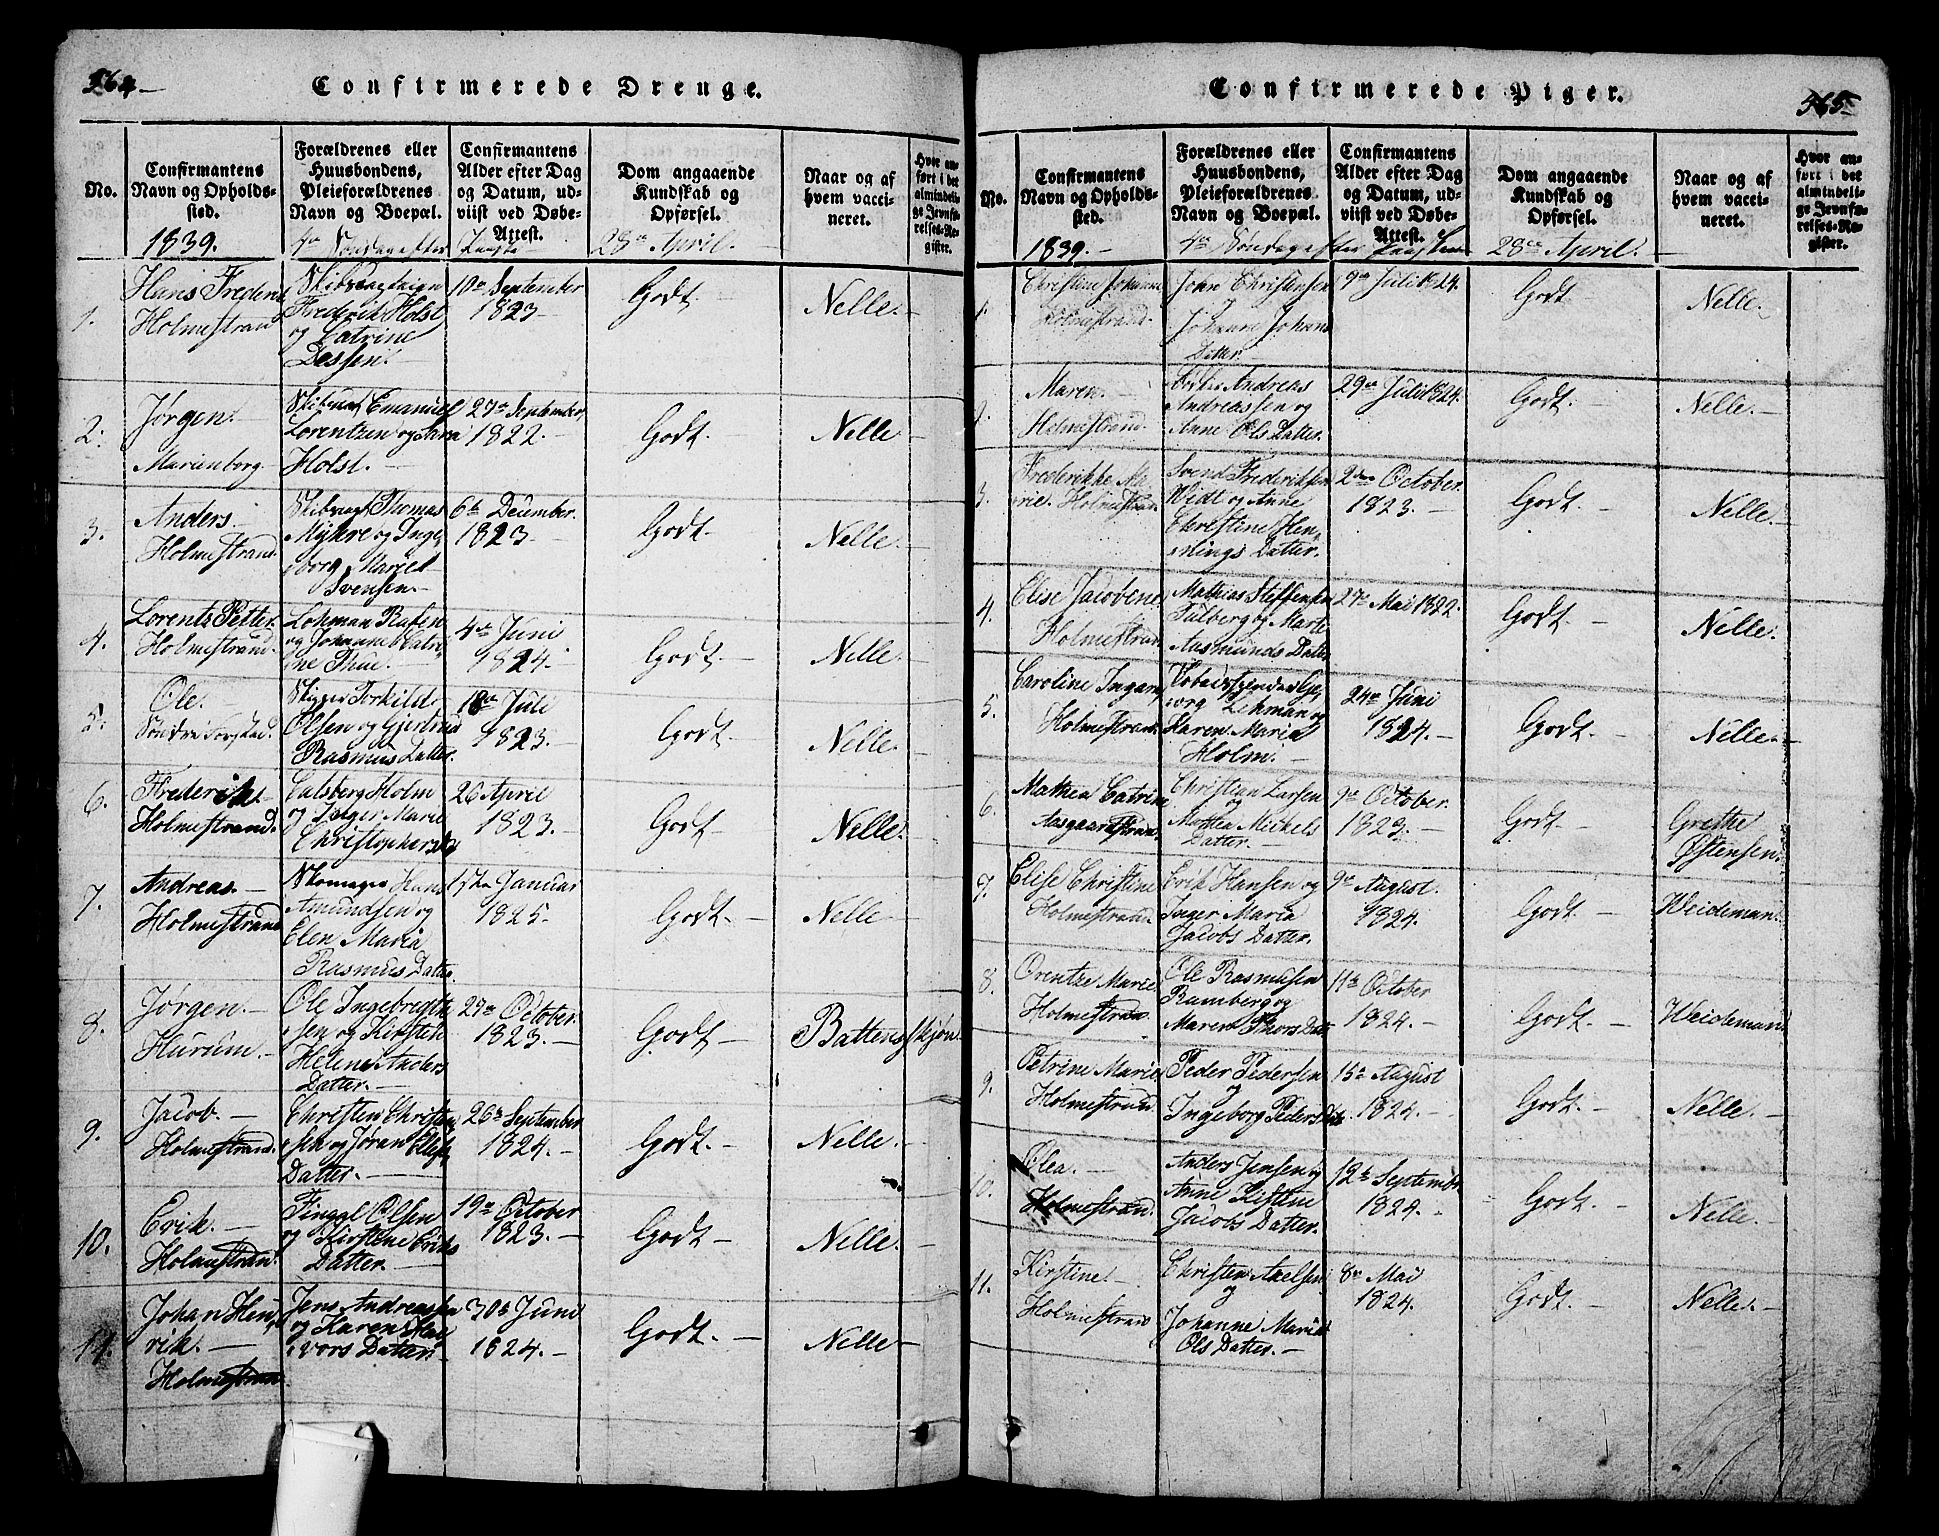 564-
Confirmerede Drenge.
No.
Confirmantens
Navn og Opholds-
sted.
Forældrenes eller
Huusbondens,
Pleieforældrenes
Navn og Boepæl.
Confirmantens
Alder efter Dag
og Datum, ud-
viist ved Døbe-
Attest.
Dom angaaende
Kundskab og
Opførsel.
Naar og af
hvem vacci-
neret.
Hvor an-
ført i det
almindeli-
ge Jevnfø-
relses-Re-
gister.
1839. 4de Søndag efter Paaske 28de April.
1.
Hans Frederik
Holmestrand
Frederik Holst
og Catrine
Dessen.
10de September
1823
Godt
Nelle.
2.
Jørgen.
Marienborg
Emanuel
Lorentzen og Sara
Holst.
27de September
1822.
Godt.
Nelle
3.
Anders.
Holmestrand.
Thomas
Myhre og Inge,
borg Marie
Svensen.
6te December.
1823
Godt.
Nelle.
4.
Lorents Petter
Holmestrand.
Lohman Rafen
og Johanne Catri,
ne Thue.
4de Juni
1824.
Godt.
Nelle.
5.
Ole.
Skipper Torkild
Olsen og Gjertrud
Rasmus Datter.
18de Juli
1823.
Godt.
Nelle.
6.
Frederik.
Holmestrand.
Calsberg Holm
og Inger Marie
26 April
1823.
Godt
Nelle
7.
Andreas.
Holmestrand
Skomager Hans
Amundsen og
Elen Maria
Rasmus Datter.
17de Januar
1825.
Godt.
Nelle
8.
Jørgen.
Hurum.
Ole Ingebredt,
sen og Kirsten
Helene Anders
Datter.
27de October.
1823.
Godt
Battenes
9.
Jacob.
Holmestrand.
Christen Christen,
sen og Jøran
Datter.
26de September
1824.
Godt.
Nelle.
10.
Erik.
Holmestrand.
Olsen
og Kirstine Eriks
Datter.
19de October
1823.
Godt
Nelle.
11.
Johan Hen,
rik.
Holmestrand.
Jens Andreassen
og Karen Hal,
vors Datter.
30te Juni
1824.
Godt.
Nelle
565-
Confirmerede Piger.
No.
Confirmantens
Navn og Opholds-
sted.
Forældrenes eller
Huusbondens,
Pleieforældrenes
Navn og Boepæl.
Confirmantens
Alder efter Dag
og Datum, ud-
viist ved Døbe-
Attest.
Dom angaaende
Kundskab og
Opførsel.
Naar og af
hvem vacci-
neret.
Hvor an-
ført i det
almindeli-
ge Jevnfø-
relses-Re-
gister.
1839. 4de Søndag efter Paaske 28de April.
1.
Christine Johanne
Holmestrand.
John Christensen
og
Johanne Johans
Datter.
9de Juli 1824.
Godt.
Nelle.
2.
Maren.
Holmestrand.
Andreas
Andreassen og
Anne Ols Datter.
29de Juli 1824.
Godt.
Nelle.
3.
Frederikke Ma,
rie. Holmestran
Svend Frederiksen
Widt og Anne
Christine Hen,
nings Datter.
2den October.
1823.
Godt.
Nelle.
4.
Elise Jacobine.
Holmestran
Mathias Steffensen
Tulberg og Marte
Aasmunds Datter
27de Mai 1822.
Godt.
Nelle.
5.
Caroline
Holmestrand.
Lehman og
Karen Maria
Holm.
24de Juni
1824.
Godt.
Nelle.
6.
Mathea Catrine
Aasgaardstrand.
Christian Larsen
og
Mathea Mickels
Datter.
9de October.
1823.
Godt.
Grethe
Østensen.
7.
Elise Christine
Holmestrand.
Erik Hansen og
Inger Maria
Jacobs Datter.
9de August.
1824.
Godt.
Weideman.
8.
Orentze Marie
Holmestrand.
Ole Rasmusen
Ramberg og
Maren Thors Datter
11te October
1824.
Godt
Weideman
9.
Petrine Marie
Holmestrand.
Peder Pedersen
og
Ingeborg Peders Datter
15de August
1824.
Godt.
Nelle.
10.
Olea.
Holmestrand.
Anders Jensen og
Anne Kistine
Jacobs Datter.
12te September
1824.
Godt.
Nelle.
11.
Kirstine.
Holmestrand
Christen Axelsen
og
Johanne Marie
Ols Datter.
8de Mai
1824.
Godt.
Nelle.